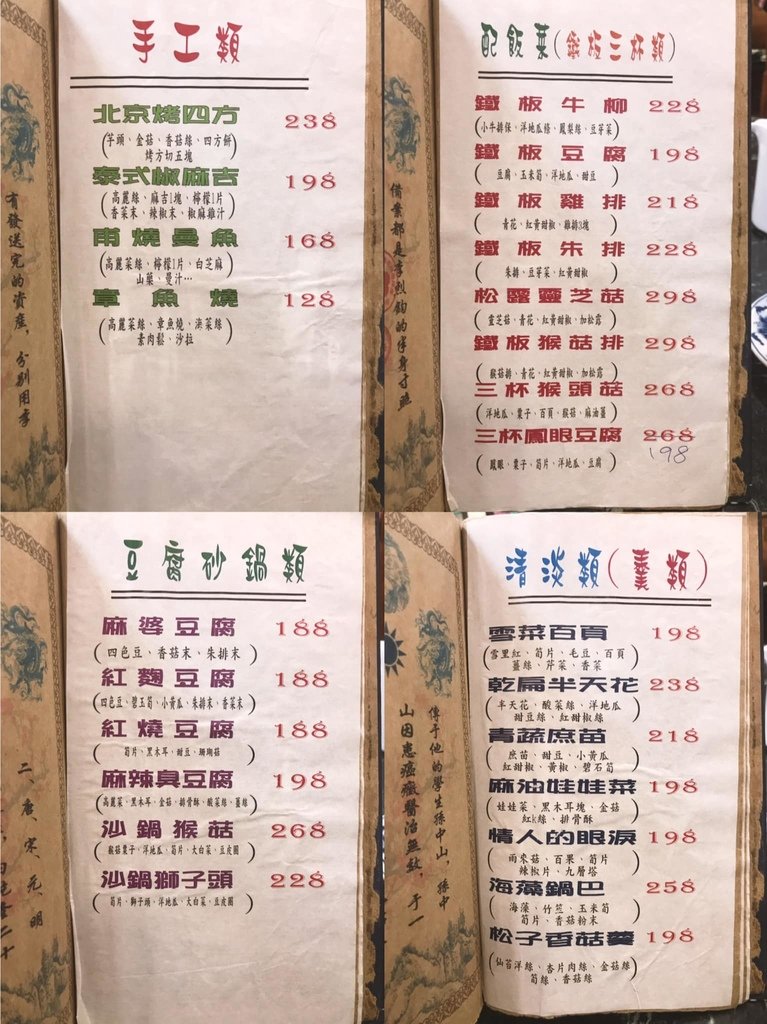 手工類
北京烤四方 238
(芋頭、金菇、香菇絲、四方餅
烤方切五塊)
泰式椒麻吉 198
(高麗絲、麻吉1塊、檸檬1片
香菜末、辣椒末、椒麻雞汁)
甫燒曼魚 168
(高麗菜絲、檸檬1片、白芝麻
山藥、曼汁…)
章魚燒 128
(高麗菜絲、章魚燒、柒菜絲
素肉鬆、沙拉)
有發送完的資產,分別用李
配飯菜(鐵板三杯類)
鐵板牛柳 228
(小牛排保、洋地瓜條、鳳梨絲、豆芽菜)
鐵板豆腐 198
(豆腐、玉米筍、洋地瓜、甜豆)
鐵板雞排 218
(青花、紅黃甜椒、雞排3塊)
鐵板朱排 228
(朱排、豆芽菜、紅黃甜椒)
松露靈芝菇 298
(靈芝菇、青花、紅黃甜椒、加松露)
鐵板猴菇排 298
(猴菇排、青花、紅黃甜椒、加松露)
三杯猴頭菇 268
(洋地瓜、栗子、百頁、猴菇、麻油薑)
三杯鳳眼豆腐 268
198
(鳳眼、栗子、筍片、洋地瓜、豆腐)
備案都是李烈鈞的
豆腐砂鍋類
麻婆豆腐 188
(四色豆、香菇末、朱排末)
紅麴豆腐 188
(四色豆、碧玉筍、小黃瓜、朱排末、香菜末)
紅燒豆腐 188
(筍片、黑木耳、甜豆、珊瑚菇)
麻辣臭豆腐 198
(高麗菜、黑木耳、金菇、排骨酥、酸菜絲、薑絲)
沙鍋猴菇 268
(猴菇栗子、洋地瓜、筍片、大白菜、豆皮圈)
沙鍋獅子頭 228
(筍片、獅子頭、洋地瓜、大白菜、豆皮圈)
二、唐、宋、元、明
清淡類(羹類)
雪菜百頁 198
(雪里紅、筍片、毛豆、百頁
薑絲、芹菜、香菜)
乾扁半天花 238
(半天花、酸菜絲、洋地瓜
甜豆絲、紅甜椒絲)
青蔬庶苗 218
(庶苗、甜豆、小黃瓜
紅甜椒、黃椒、碧石筍)
麻油娃娃菜 198
(娃娃菜、黑木耳塊、金菇
紅k絲、排骨酥)
情人的眼淚 198
(雨來菇、百果、筍片
辣椒片、九層塔)
海藻鍋巴 258
(海藻、竹笙、玉米筍
筍片、香菇粉末)
松子香菇羹 198
(仙苔洋絲、杏片肉絲、金菇絲
筍絲、香菇絲)
傳于他的學生孫中山,孫中
山因患癌癥醫治無效,于一